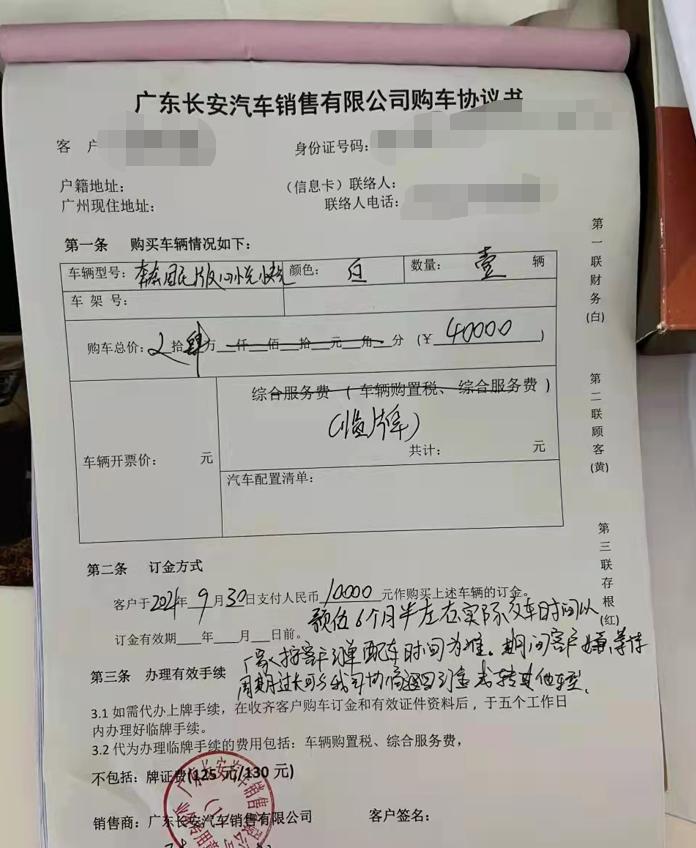 广东长安汽车销售有限公司购车协议书
客 户
身份证号码:
户籍地址:
(信息卡)联络人:
广州现住地址:
联络人电话:
第一条 购买车辆情况如下:
车辆型号: 版 颜色: 白 数量: 壹 辆
车 架 号:
购车总价: 拾 肆 万 仟 佰 拾 元 角 分 (¥ 40000 )
综合服务费 ( 车辆购置税、 综合服务费 )
(临牌)
车辆开票价: 元
共计: 元
汽车配置清单:
第二条 订金方式
客户于2021年 9 月30日支付人民币 10000 元作购买上述车辆的订金。
预估6个月半左右实际交车时间以
订金有效期 年 月 日前。
厂家按客户到单配车时间为准。期间客户嫌等待
第三条 办理有效手续
周期过长可与我司协商退回订金或转其他车型.
3.1 如需代办上牌手续,在收齐客户购车订金和有效证件资料后,于五个工作日
内办理好临牌手续。
3.2 代为办理临牌手续的费用包括:车辆购置税、综合服务费,
不包括:牌证费(125元/130元)
销售商:广东长安汽车销售有限公司 客户签名:
第一联财务(白)
第二联顾客(黄)
第三联存根(红)
广东长安汽车销售有限公司